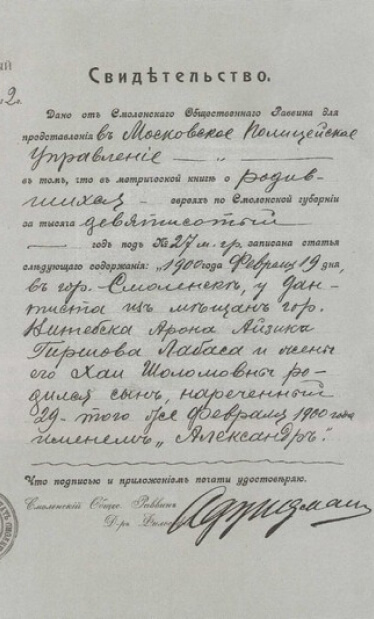 Свидѣтельство.
Дано отъ Смоленскаго Общественнаго Раввина для
представленія въ Московское Полицейское
Управленіе
въ томъ, что въ метрической книгѣ о родив-
шихся евреяхъ по Смоленской губерніи
за тысяча девятисотый
годъ подъ № 27 м. гр. записана статья
слѣдующаго содержанія: „1900 года Февраля 19 дня,
въ гор. Смоленскѣ, у дан-
тиста изъ мѣщанъ гор.
Витебска Арона Айзика
Гиршова Лабаса и жены
его Хаи Шоломовны ро-
дился сынъ, нареченный
29-того же Февраля 1900 года
именемъ „Александръ".
Что подписью и приложеніемъ печати удостовѣряю.
Смоленскій Общес. Раввинъ
Д-ръ